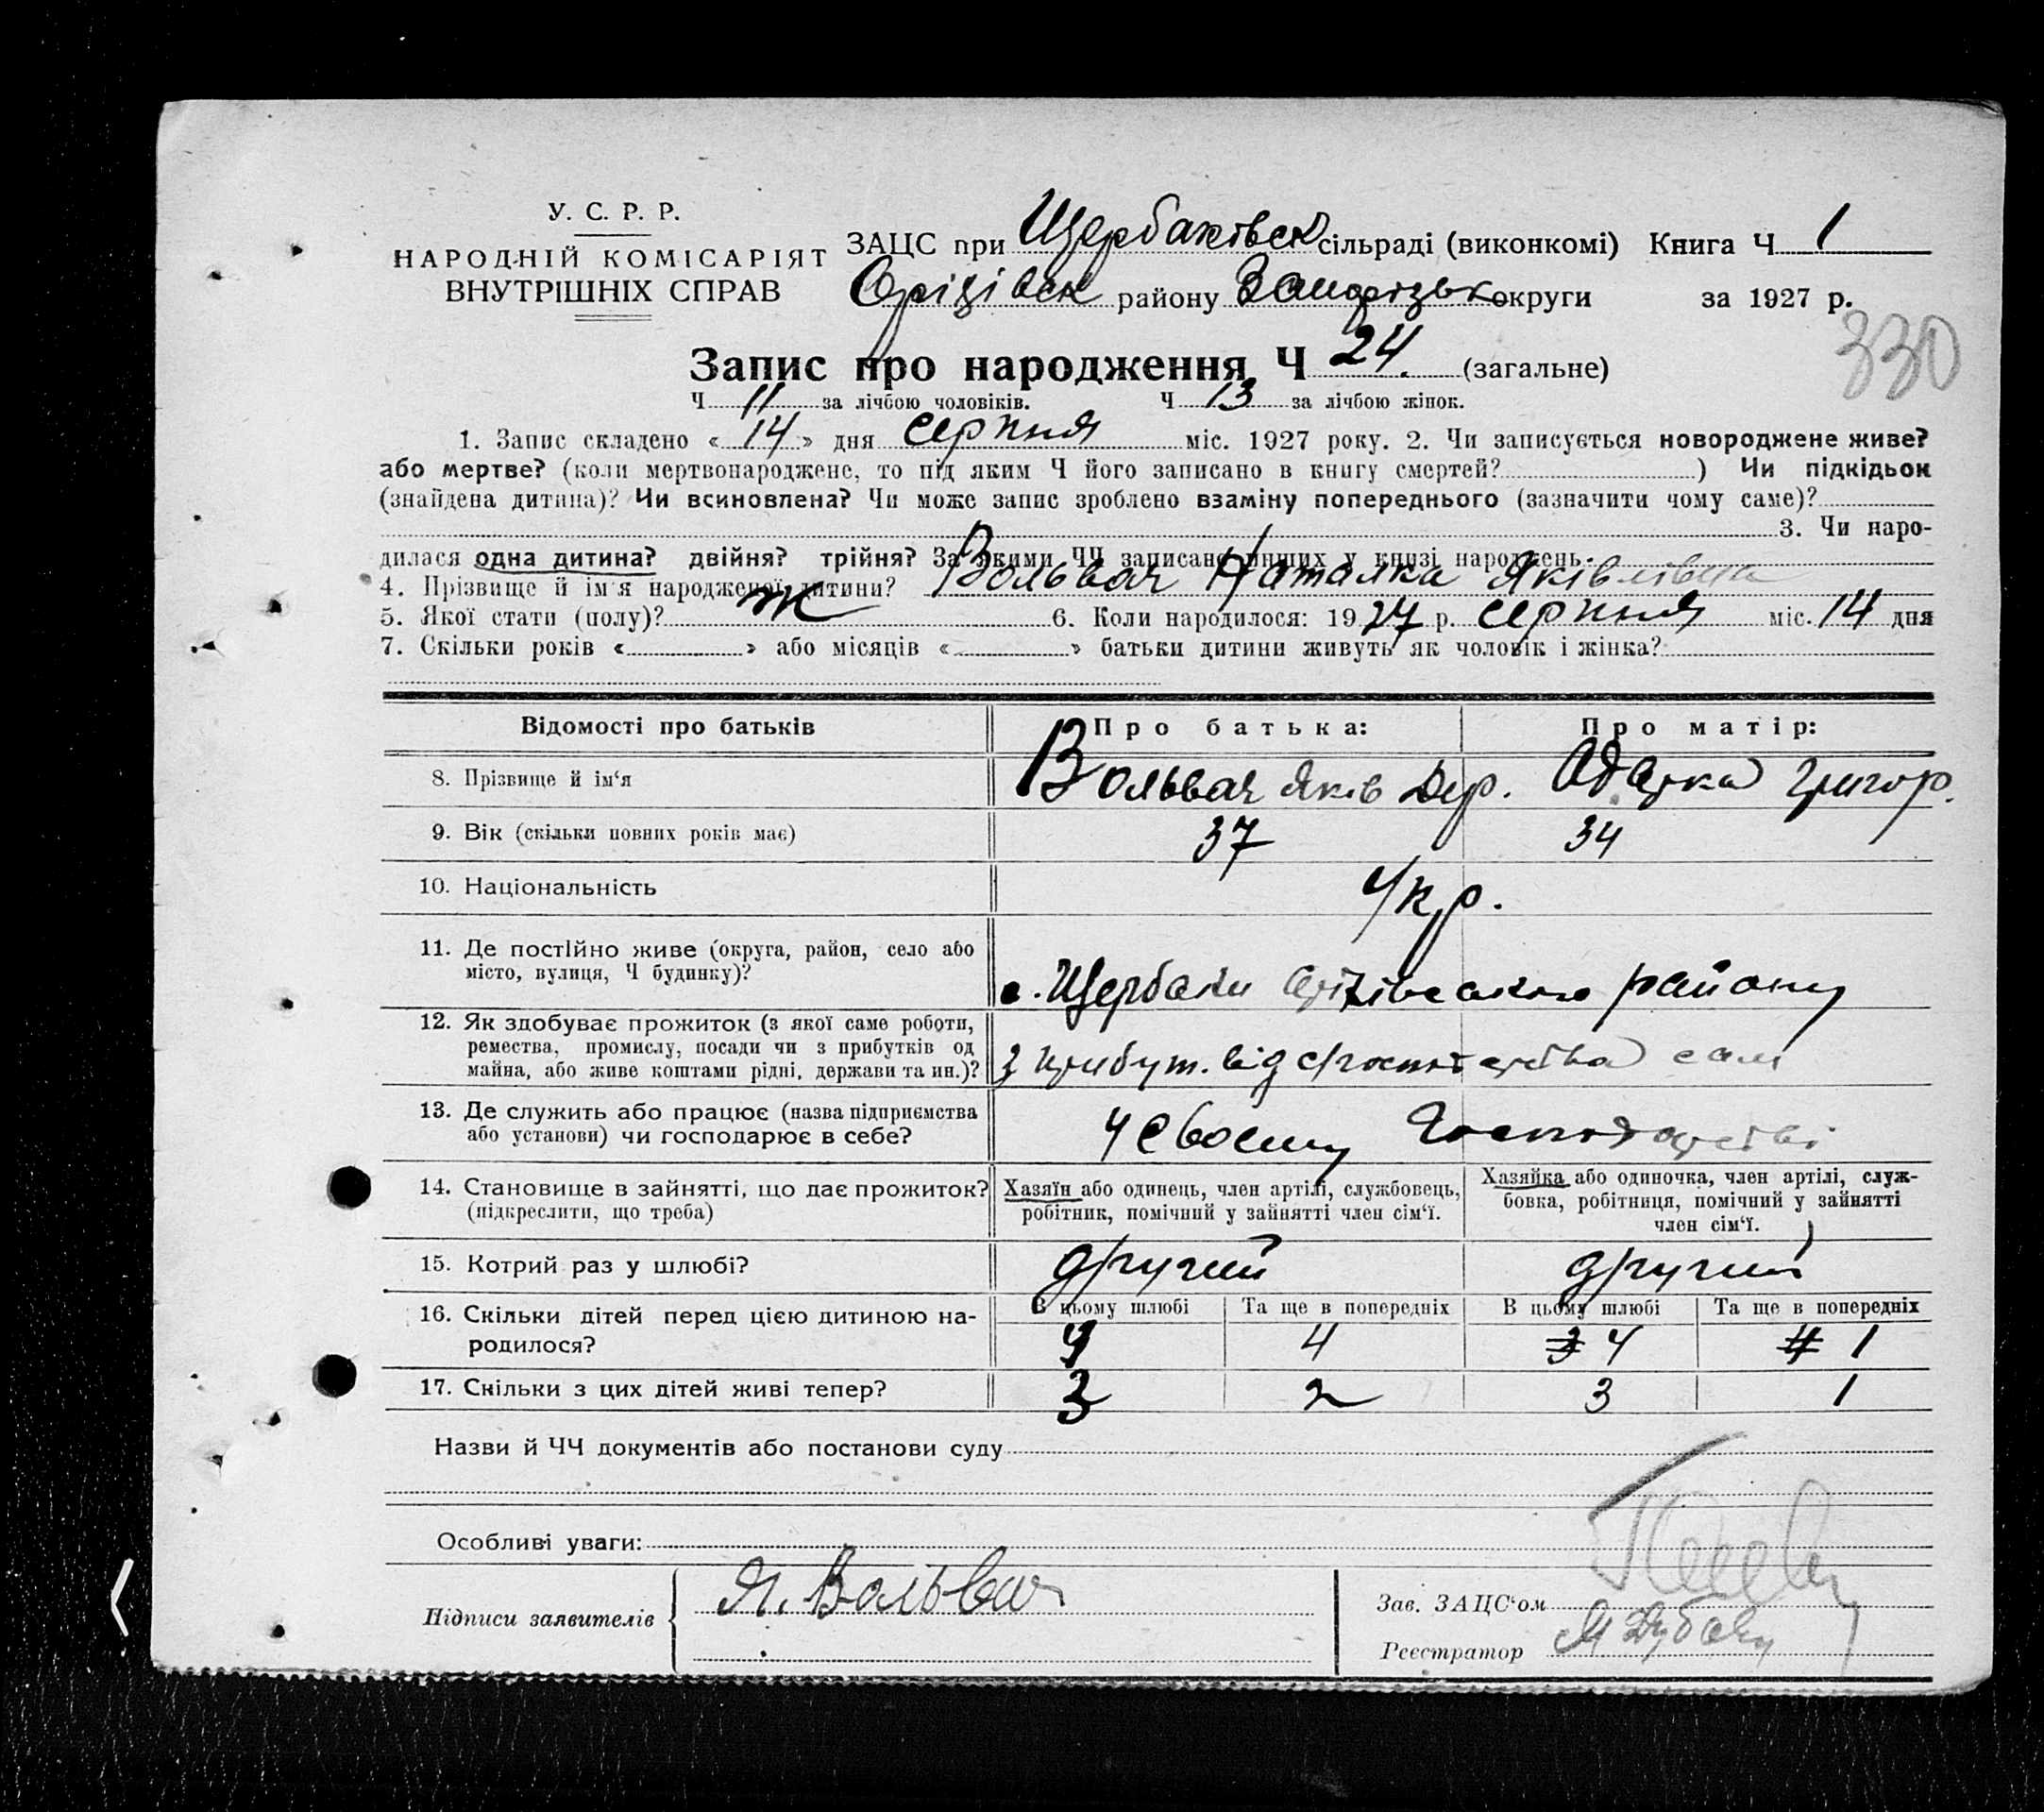 У. С. Р. Р.
НАРОДНІЙ КОМІСАРІЯТ
ВНУТРІШНІХ СПРАВ
ЗАЦС при Щербаківськ сільраді (виконкомі) Книга Ч 1
Оріхівськ району Запорізьк округи за 1927 р.
330
Запис про народження Ч 24. (загальне)
Ч 11 за лічбою чоловіків. Ч 13 за лічбою жінок.
1. Запис складено « 14 » дня серпня міс. 1927 року. 2. Чи записується новороджене живе?
або мертве? (коли мертвонароджене, то під яким Ч його записано в книгу смертей? ) Чи підкідьок
(знайдена дитина)? Чи всиновлена? Чи може запис зроблено взаміну попереднього (зазначити чому саме)?
3. Чи наро-
дилася одна дитина? двійня? трійня? За якими ЧЧ записано инших у книзі народжень
4. Прізвище й ім'я народженої дитини? Вольвач Наталка Яківлівна
5. Якої стати (полу)? Ж 6. Коли народилося: 1927 р. серпня міс. 14 дня
7. Скільки років « » або місяців « » батьки дитини живуть як чоловік і жінка?
Відомості про батьків Про батька: Про матір:
8. Прізвище й ім'я Вольвач Яків Григор.
9. Вік (скільки повних років має) 37 34
10. Національність Укр.
11. Де постійно живе (округа, район, село або
місто, вулиця, Ч будинку)?
с. Щербаки Оріхівського району
12. Як здобуває прожиток (з якої саме роботи,
ремества, промислу, посади чи з прибутків од
майна, або живе коштами рідні, держави та ин.)?
з прибут. від
13. Де служить або працює (назва підприємства
або установи) чи господарює в себе?
У своєму господарстві
14. Становище в зайнятті, що дає прожиток?
(підкреслити, що треба)
Хазяїн або одинець, член артілі, службовець,
робітник, помічний у зайнятті член сім'ї.
Хазяйка або одиночка, член артілі, служ-
бовка, робітниця, помічний у зайнятті
член сім'ї.
15. Котрий раз у шлюбі? другий другий
16. Скільки дітей перед цією дитиною на-
родилося?
В цьому шлюбі Та ще в попередніх В цьому шлюбі Та ще в попередніх
4 4 3 4 4 1
17. Скільки з цих дітей живі тепер? 3 2 3 1
Назви й ЧЧ документів або постанови суду
Особливі уваги:
Підписи заявителів Я. Вольвач
Зав. ЗАЦС'ом
Реєстратор